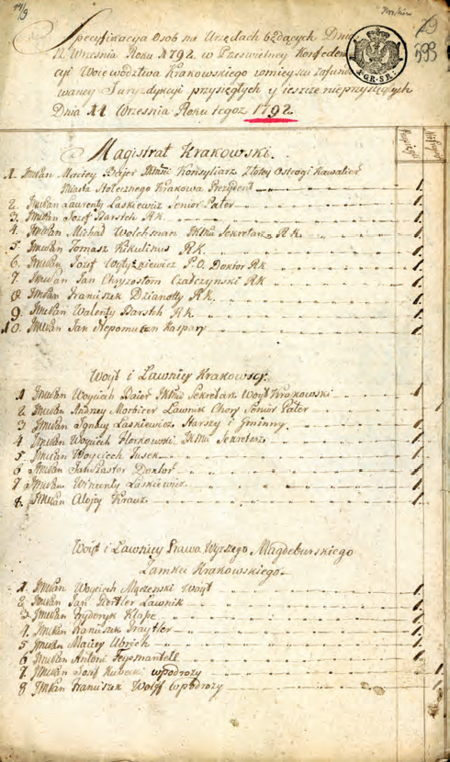 Specyfikacyja Osob na Urzędach będących Dnia
12 Września Roku 1792. w Prześwietney Konfedera
cyi Woiewództwa Krakowskiego
Juryzdykcyi przysięgłych y ieszcze nieprzysięgłych
Dnia 11 Września Roku tegoż 1792.
GR·SR·
593
Magistrat Krakowski.
1. Jmć Pan Maciey Bajer JKMci Konsyliarz Złotey Ostrogi Kawaller
Miasta Stołecznego Krakowa Prezydent
2. Jmć Pan Laurenty Laskiewicz Senior Pater
3. Jmć Pan Jozef Bartsch R.K.
4. Jmć Pan Michał Wolchman JKMci Sekretarz R.K.
5. Jmć Pan Tomasz Kikulinus R.K.
6. Jmć Pan Jozef P.O. Doktor R.K.
7. Jmć Pan Jan Chryzostom Czałczynski R.K.
8. Jmć Pan Franciszek Dzianotty R.K.
9. Jmć Pan Walenty Bartsch R.K.
10. Jmć Pan Jan Nepomucen Kaspary
Woyt i Ławnicy Krakowscy.
1 Jmć Pan Woyciech Baier JKMci Sekretarz Woyt Krakowski
2 Jmć Pan Andrzey Morbicer Ławnik Chory Senior Pater
3 Jmć Pan Ignacy Laskiewicz Starszy i Gminny
4 Jmć Pan Woyciech Florkowski JKMci Sekretarz
5 Jmć Pan Woyciech Jusek
6 Jmć Pan Jan Kastor Doktor
7 Jmć Pan Wincenty Laskiewicz
8. Jmć Pan Aloizy Krauz
Woyt i Ławnicy Prawa Wyższego Magdeburskiego
Zamku Krakowskiego.
1. Jmć Pan Woyciech Mączenski Woyt
2. Jmć Pan Jan Ławnik
3 Jmć Pan Fryderyk Klope
4. Jmć Pan Franciszek Fraytler
5 Jmć Pan Maciey Ulrych
6 Jmć Pan Antoni Feysmantell
7 Jmć Pan Jozef Kubecki w podroży
8 Jmć Pan Franciszek Wolff w podroży